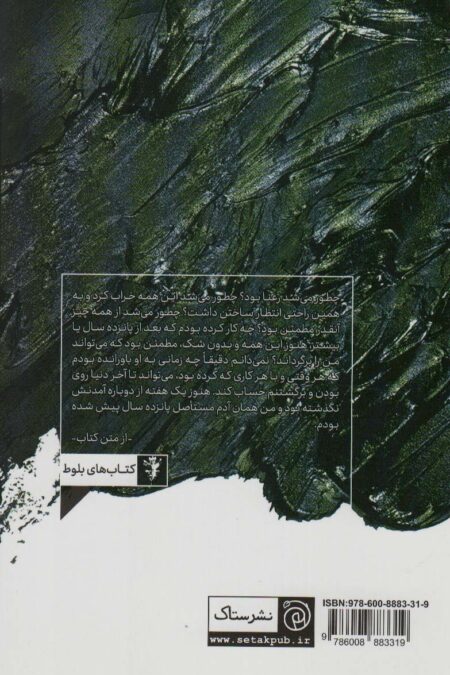 چطور می‌شد رعنا بود؟ چطور می‌شد این همه خراب کرد و به
همین راحتی انتظار ساختن داشت؟ چطور می‌شد از همه چیز
آنقدر مطمئن بود؟ چه کار کرده بودم که بعد از پانزده سال یا
بیشتر، هنوز این همه و بدون شک، مطمئن بود که می‌تواند
من را برگرداند؟ نمی‌دانم دقیقاً چه زمانی به او باورانده بودم
که هر وقتی و با هر کاری که کرده بود، می‌تواند تا آخر دنیا روی
بودن و برگشتنم حساب کند. هنوز یک هفته از دوباره آمدنش
نگذشته بود و من همان آدم مستاصل پانزده سال پیش شده
بودم.
-از متن کتاب-
کتاب‌های بلوط
نشر ستاک
www.setakpub.ir
ISBN:978-600-8883-31-9
9 786008 883319